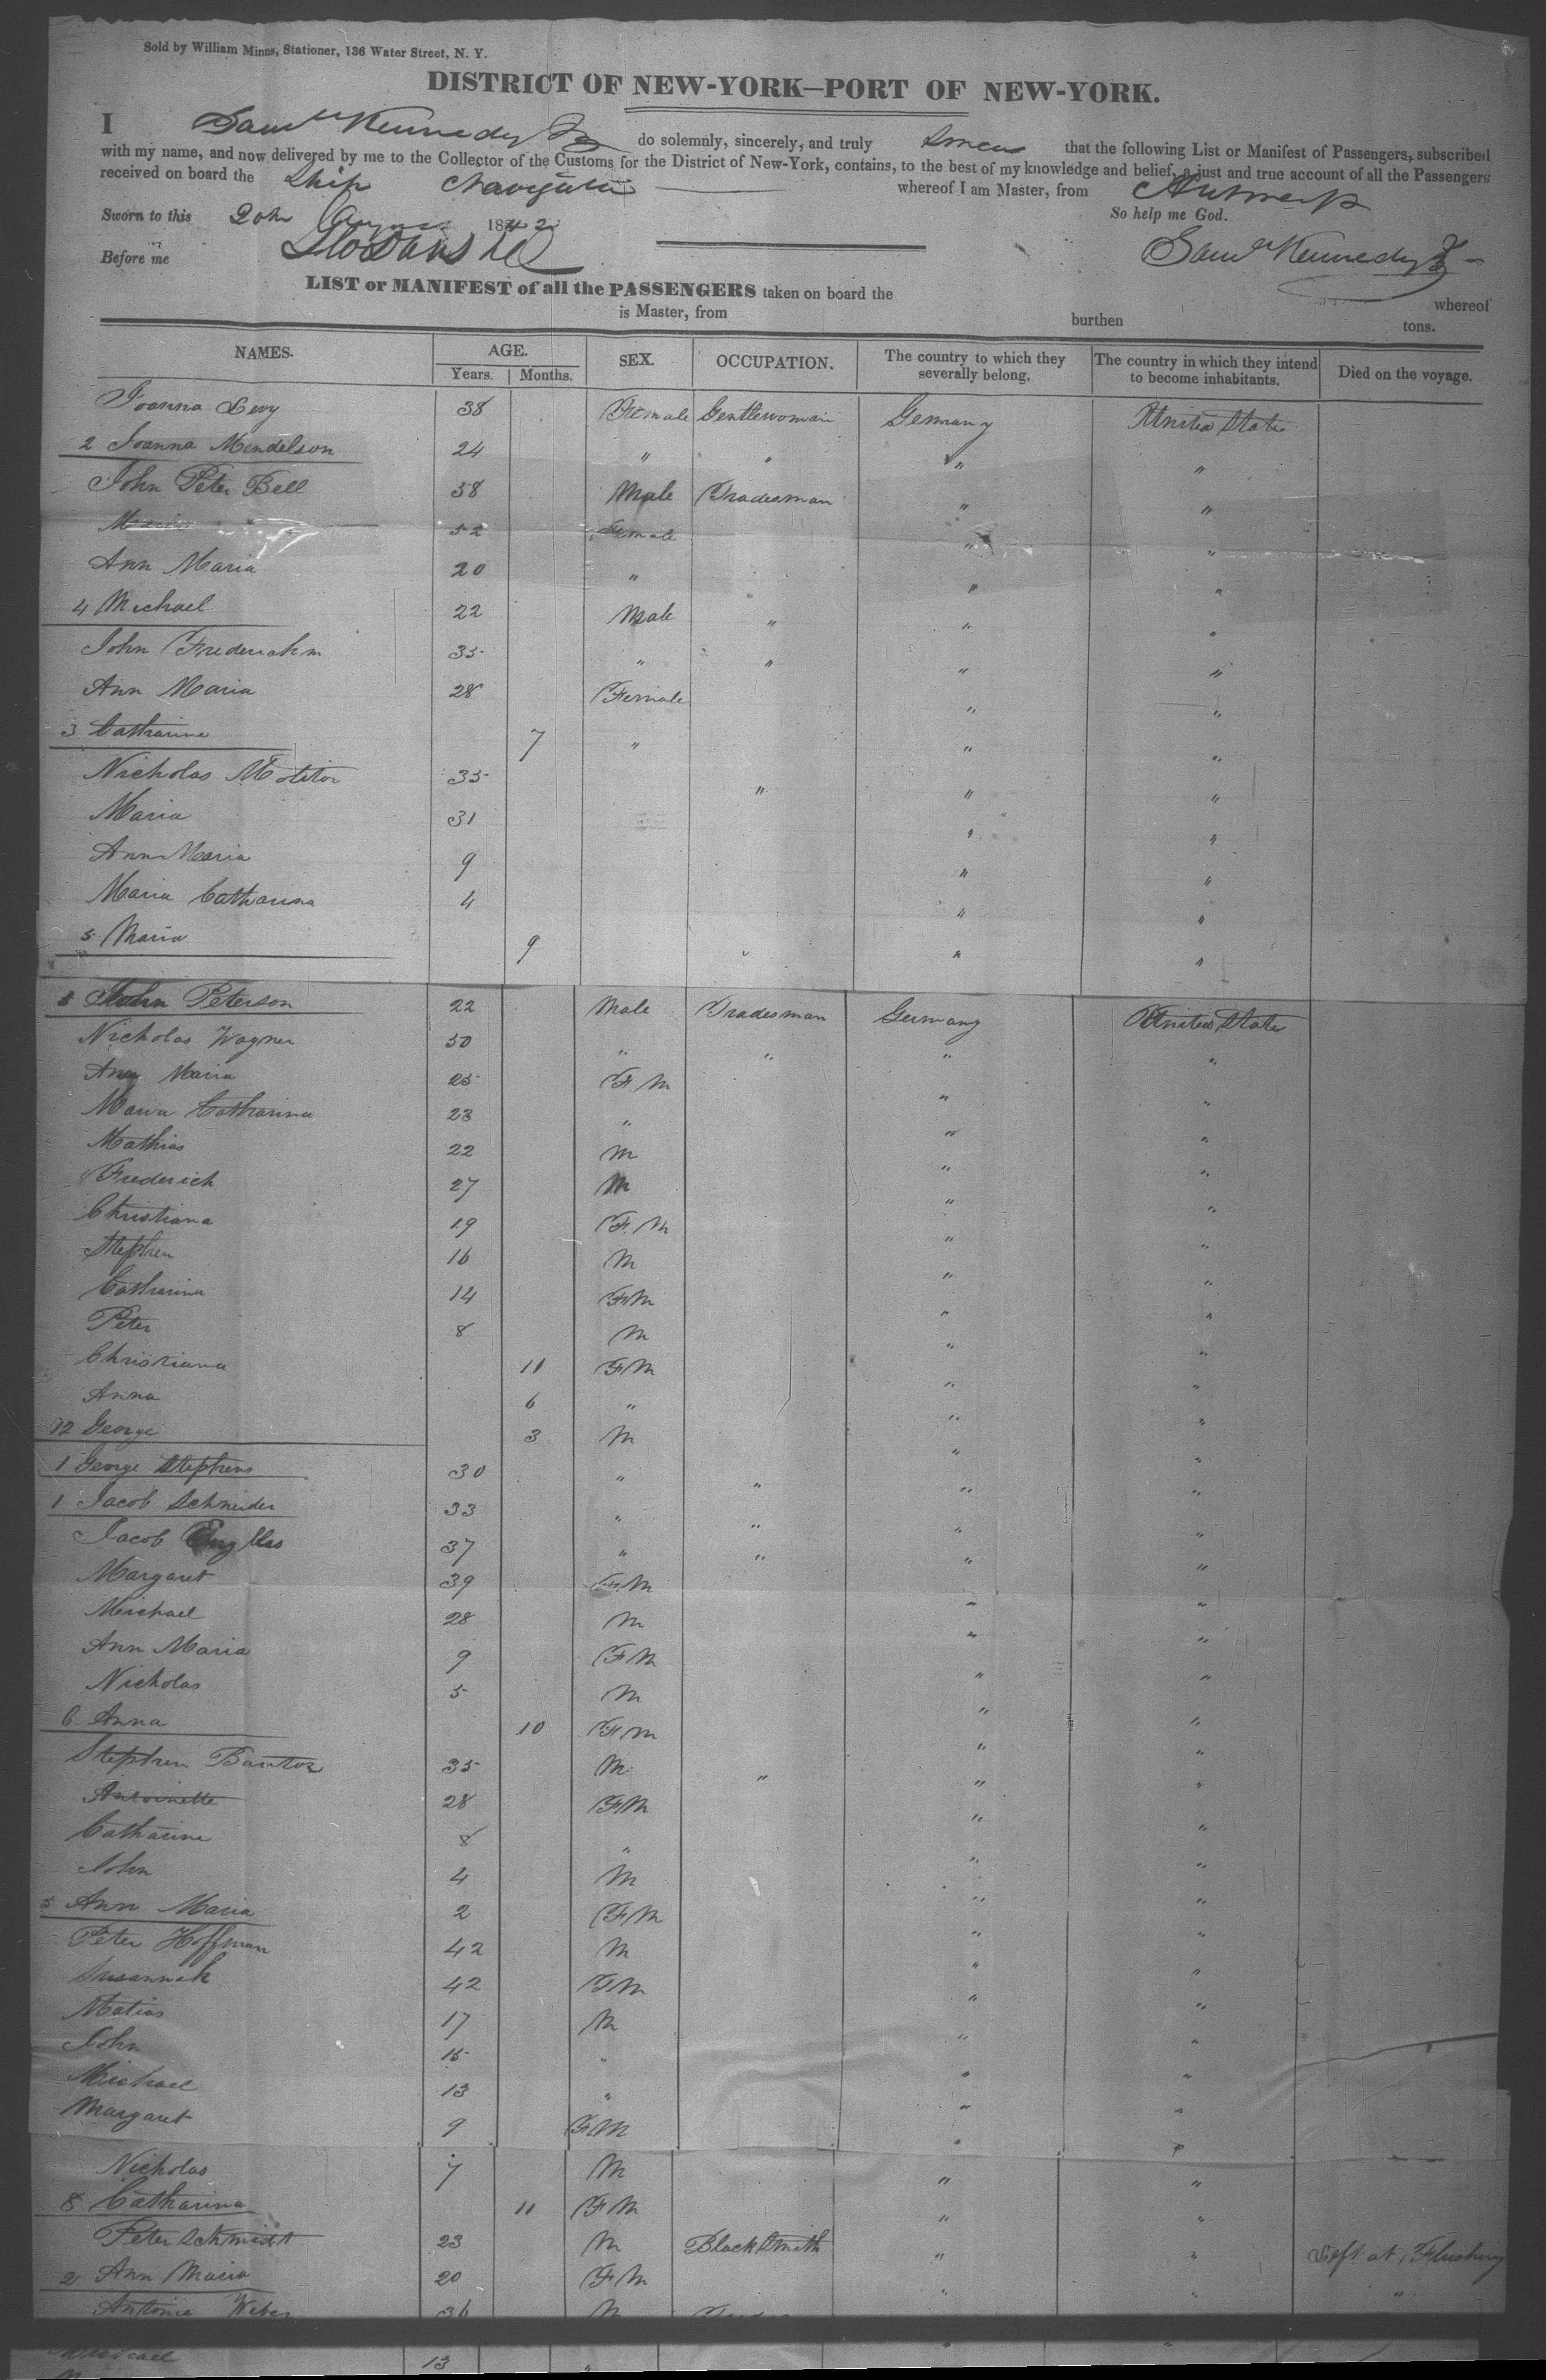 Sold by William Minns, Stationer, 136 Water Street, N. Y.
DISTRICT OF NEW-YORK—PORT OF NEW-YORK.
I Saml Kennedy Jr do solemnly, sincerely, and truly swear that the following List or Manifest of Passengers, subscribed
with my name, and now delivered by me to the Collector of the Customs for the District of New-York, contains, to the best of my knowledge and belief, a just and true account of all the Passengers
received on board the Ship whereof I am Master, from Antwerp
Sworn to this 20th August 1842 So help me God.
Before me Saml Kennedy Jr
LIST or MANIFEST of all the PASSENGERS taken on board the whereof
is Master, from burthen tons.
NAMES. AGE. Years. Months. SEX. OCCUPATION. The country to which they severally belong. The country in which they intend to become inhabitants. Died on the voyage.
Joanna Levy 38 Female Gentlewoman Germany United States
2 Joanna Mendelson 24 " " " "
John Peter Bell 58 Male Tradesman " "
52 Female " "
Ann Maria 20 " " "
4 Michael 22 Male " " "
John 35 " " " "
Ann Maria 28 Female " "
3 Catharine 7 " " "
Nicholas Molitor 35 " " "
Maria 31 " "
Ann Maria 9 " "
Maria Catharina 4 " "
5 Maria 9 " " "
John Peterson 22 Male Tradesman Germany United States
Nicholas Wagner 50 " " " "
Ann Maria 25 F M " "
Maria Catharina 23 " " "
Mathias 22 M " "
Frederich 27 M " "
Christiana 19 F M " "
Stephen 16 M " "
Catharina 14 F M " "
Peter 8 M " "
Christiana 11 F M " "
Anna 6 " " "
12 George 3 M " "
1 George Stephens 30 " " " "
1 Jacob Schneider 33 " " " "
Jacob 37 " " " "
Margaret 39 F M " "
Michael 28 M " "
Ann Maria 9 F M " "
Nicholas 5 M " "
6 Anna 10 F M " "
Stephen 35 M " " "
Antoinette 28 F M " "
Catharine 8 " " "
John 4 M " "
5 Ann Maria 2 F M " "
Peter Hoffman 42 M " "
Susannah 42 F M " "
Matias 17 M " "
John 15 " " "
Michael 13 " " "
Margaret 9 F M " "
Nicholas 7 M " "
8 Catharina 11 F M " "
Peter Schmidt 23 M Black Smith " " Left at Flushing
2 Ann Maria 20 F M " " "
Antoine Weber 36 M
Michael 13 "